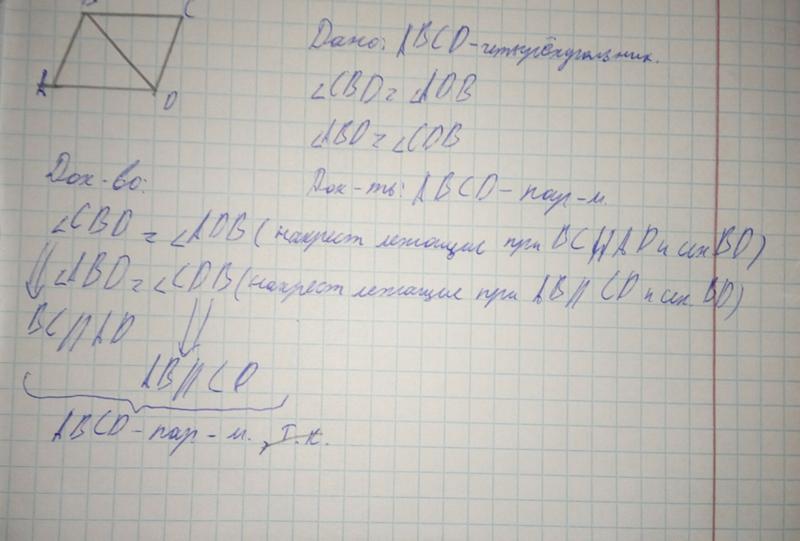 C
A
D
Дано: ABCD - четырёхугольник.
∠CBD = ∠ADB
∠ABD = ∠CDB
Док-ть: ABCD - пар-м.
Док-во:
∠CBD = ∠ADB (накрест лежащие при BC∦AD и сек BD)
∠ABD = ∠CDB (накрест лежащие при AB∥CD и сек. BD)
⇓
BC∥AD
⇓
AB∥CD
ABCD - пар-м., т.к.